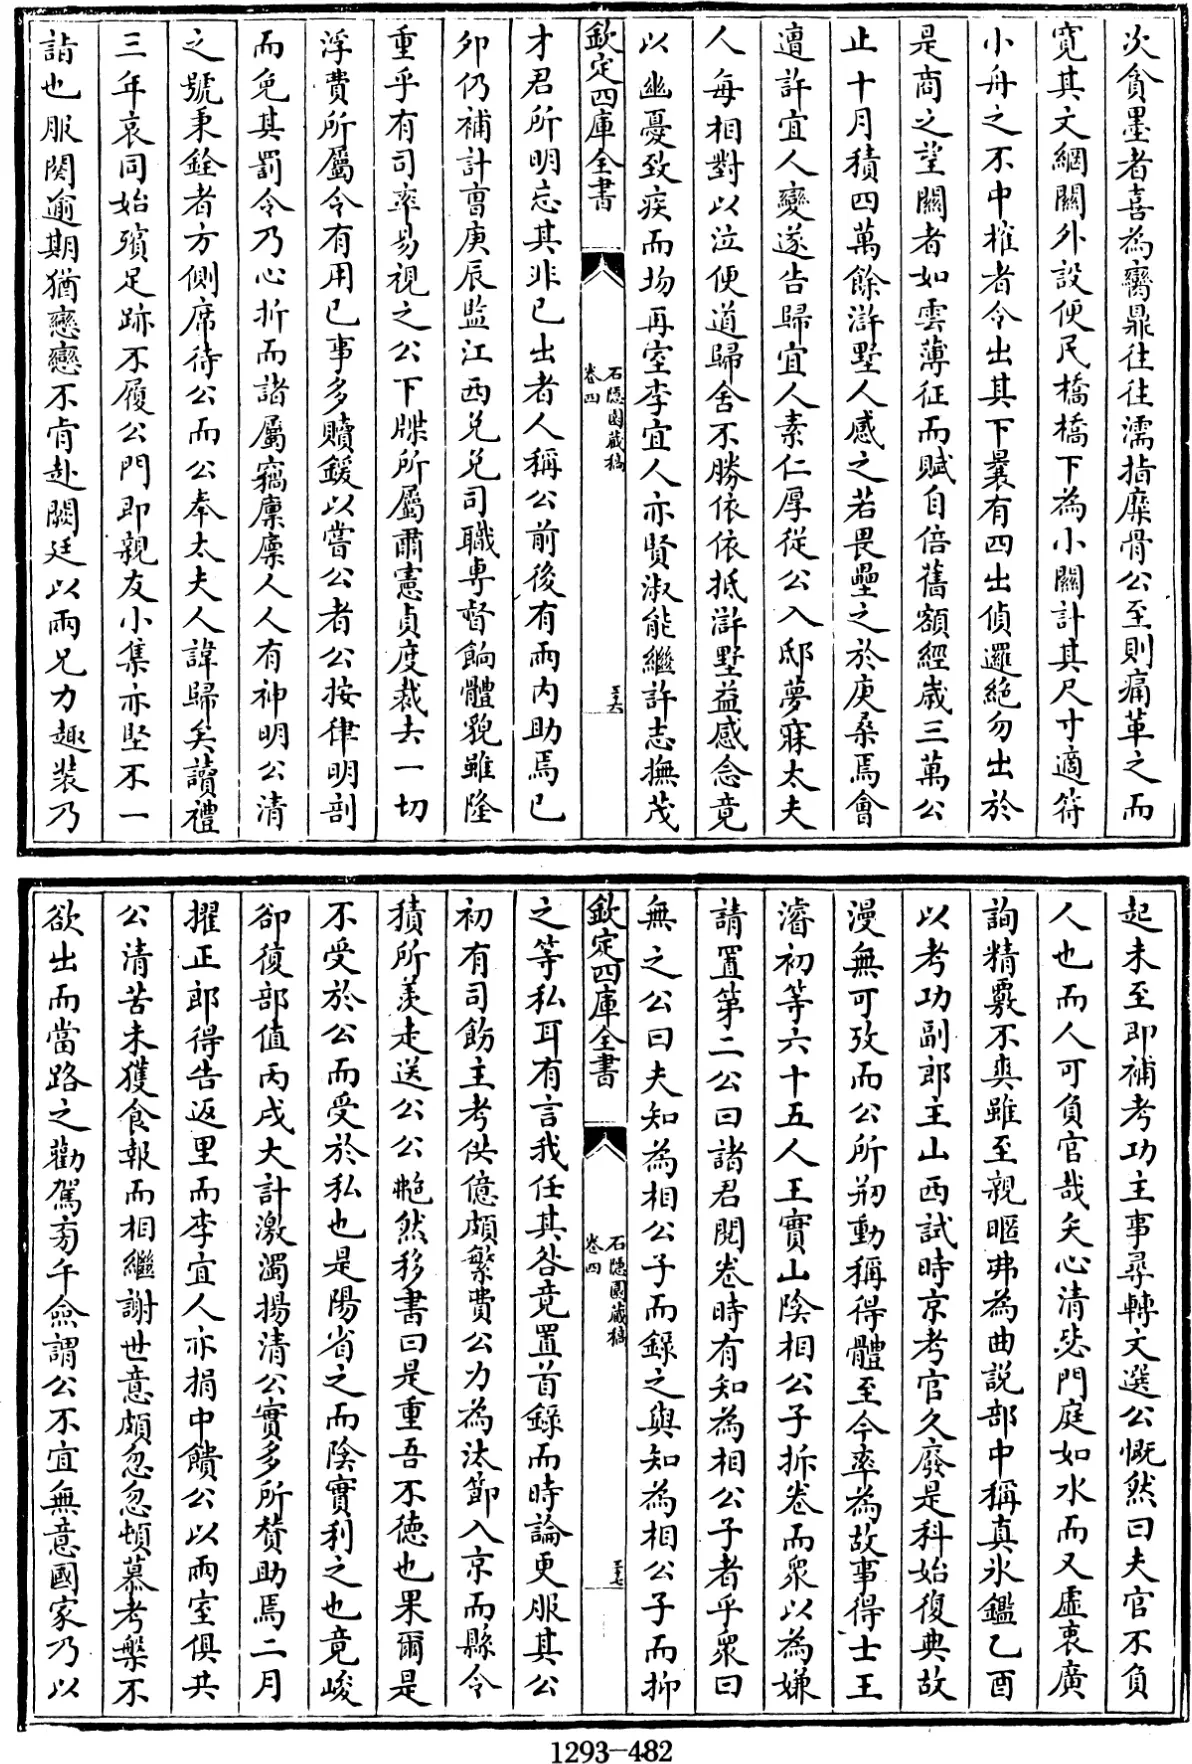 次貪墨者喜為臠鼎往往濡指糜骨公至則痛革之而
寛其文網關外設便民橋橋下為小關計其尺寸適符
小舟之不中榷者令出其下曩有四出偵邏絶勿出於
是商之望關者如雲薄征而賦自倍舊額經歲三萬公
止十月積四萬餘滸墅人感之若畏壘之於庚桑焉會
邅許宜人變遂告歸宜人素仁厚從公入邸夢寐太夫
人每相對以泣便道歸舍不勝依依抵滸墅益感念竟
以幽憂致疾而歾再室李宜人亦賢淑能繼許志撫茂
欽定四庫全書
石隠園藏稿
卷四
三十六
才君所明忘其非已出者人稱公前後有兩内助焉已
夘仍補計曺庚辰監江西兌兌司職專督餉體貌雖隆
重乎有司率易視之公下牒所屬肅憲貞度裁去一切
浮費所屬令有用已事多贖鍰以嘗公者公按律明剖
而免其罰令乃心折而諸屬竊凛凛人人有神明公清
之號秉銓者方側席待公而公奉太夫人諱歸矣讀禮
三年哀同始殯足跡不履公門即親友小集亦堅不一
詣也服闋逾期猶戀戀不肯赴闕廷以兩兄力趣装乃
起未至即補考功主事尋轉文選公慨然曰夫官不負
人也而人可負官哉矢心清毖門庭如水而又虛衷廣
詢精覈不爽雖至親暱弗為曲説部中稱真氷鑑乙酉
以考功副郎主山西試時京考官久廢是科始復典故
漫無可攷而公所剏動稱得體至今率為故事得士王
濬初等六十五人王實山陰相公子拆卷而衆以為嫌
請置第二公曰諸君閲卷時有知為相公子者乎衆曰
無之公曰夫知為相公子而録之與知為相公子而抑
欽定四庫全書
石隠園藏稿
卷四
三十七
之等私耳有言我任其咎竟置首録而時論更服其公
初有司飭主考供億頗繁費公力為汰節入京而縣令
積所羨走送公公艴然移書曰是重吾不德也果爾是
不受於公而受於私也是陽省之而陰實利之也竟峻
卻復部值丙戌大計激濁揚清公實多所賛助焉二月
擢正郎得告返里而李宜人亦捐中饋公以兩室俱共
公清苦未獲食報而相繼謝世意頗忽忽頓慕考槃不
欲出而當路之勸駕旁午僉謂公不宜無意國家乃以
1293-482